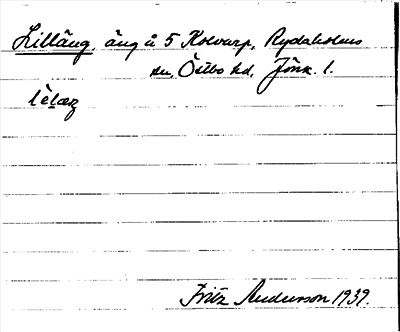 Lilläng, äng å 5 Kolvarp, Rydaholms
sn, Östbo hd, Jönk. l.
Fritz Anderson 1939.